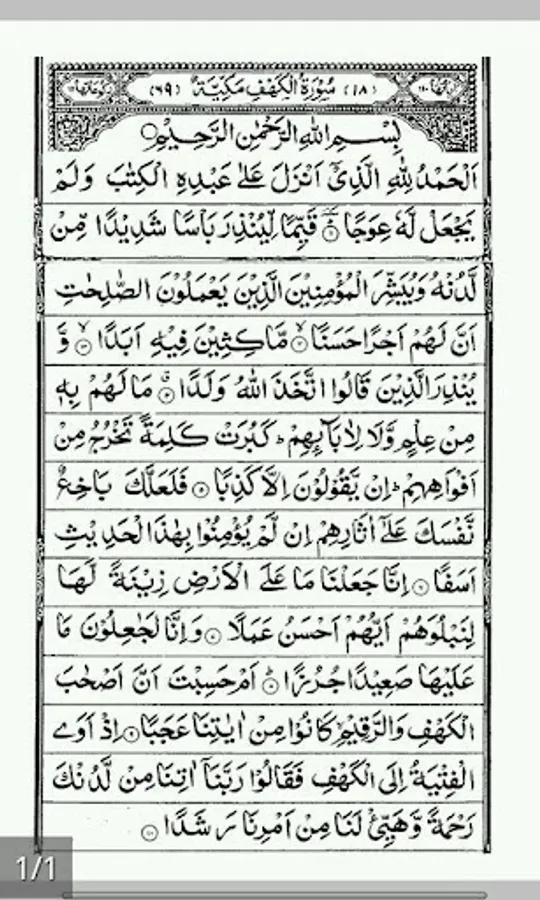 (١٨) سُوْرَةُ الْكَهْفِ مَكِّيَّةٌ (٦٩)
بِسْمِ اللهِ الرَّحْمٰنِ الرَّحِيْمِ
اَلْحَمْدُ لِلّٰهِ الَّذِیْۤ اَنْزَلَ عَلٰی عَبْدِهِ الْكِتٰبَ وَلَمْ
یَجْعَلْ لَّهٗ عِوَجًا ۝ قَیِّمًا لِّیُنْذِرَ بَاْسًا شَدِیْدًا مِّنْ
لَّدُنْهُ وَیُبَشِّرَ الْمُؤْمِنِیْنَ الَّذِیْنَ یَعْمَلُوْنَ الصّٰلِحٰتِ
اَنَّ لَهُمْ اَجْرًا حَسَنًا ۝ مَّاكِثِیْنَ فِیْهِ اَبَدًا ۝ وَّ
یُنْذِرَ الَّذِیْنَ قَالُوا اتَّخَذَ اللهُ وَلَدًا ۝ مَا لَهُمْ بِهٖ
مِنْ عِلْمٍ وَّلَا لِاٰبَآىِٕهِمْ ؕ كَبُرَتْ كَلِمَةً تَخْرُجُ مِنْ
اَفْوَاهِهِمْ ؕ اِنْ یَّقُوْلُوْنَ اِلَّا كَذِبًا ۝ فَلَعَلَّكَ بَاخِعٌ
نَّفْسَكَ عَلٰۤی اٰثَارِهِمْ اِنْ لَّمْ یُؤْمِنُوْا بِهٰذَا الْحَدِیْثِ
اَسَفًا ۝ اِنَّا جَعَلْنَا مَا عَلَی الْاَرْضِ زِیْنَةً لَّهَا
لِنَبْلُوَهُمْ اَیُّهُمْ اَحْسَنُ عَمَلًا ۝ وَاِنَّا لَجٰعِلُوْنَ مَا
عَلَیْهَا صَعِیْدًا جُرُزًا ۝ اَمْ حَسِبْتَ اَنَّ اَصْحٰبَ
الْكَهْفِ وَالرَّقِیْمِ كَانُوْا مِنْ اٰیٰتِنَا عَجَبًا ۝ اِذْ اَوَی
الْفِتْیَةُ اِلَی الْكَهْفِ فَقَالُوْا رَبَّنَاۤ اٰتِنَا مِنْ لَّدُنْكَ
رَحْمَةً وَّهَیِّئْ لَنَا مِنْ اَمْرِنَا رَشَدًا ۝
1/1